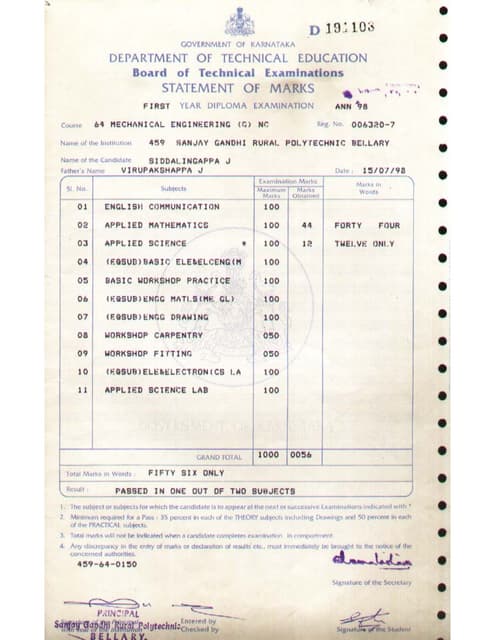 D 191108
GOVERNMENT OF KARNATAKA
DEPARTMENT OF TECHNICAL EDUCATION
Board of Technical Examinations
STATEMENT OF MARKS
FIRST YEAR DIPLOMA EXAMINATION ANN '98
Course 64 MECHANICAL ENGINEERING (G) NC Reg. No. 006320-7
Name of the Institution 459 SANJAY GANDHI RURAL POLYTECHNIC BELLARY
Name of the Candidate SIDDALINGAPPA J
Father's Name VIRUPAKSHAPPA J Date : 15/07/98
Sl. No. Subjects Examination Marks Maximum Marks Marks Obtained Marks in Words
01 ENGLISH COMMUNICATION 100
02 APPLIED MATHEMATICS 100 44 FORTY FOUR
03 APPLIED SCIENCE * 100 12 TWELVE ONLY
04 (EQSUB)BASIC ELE&ELCENG(M 100
05 BASIC WORKSHOP PRACTICE 100
06 (EQSUB)ENGG MATLS(ME GL) 100
07 (EQSUB)ENGG DRAWING 100
08 WORKSHOP CARPENTRY 050
09 WORKSHOP FITTING 050
10 (EQSUB)ELE&ELECTRONICS LA 100
11 APPLIED SCIENCE LAB 100
GRAND TOTAL 1000 0056
Total Marks in Words : FIFTY SIX ONLY
Result : PASSED IN ONE OUT OF TWO SUBJECTS
1. The subject or subjects for which the candidate is to appear at the next or successive Examinations indicated with *
2. Minimum required for a Pass : 35 percent in each of the THEORY subjects including Drawings and 50 percent in each
of the PRACTICAL subjects.
3. Total marks will not be indicated when a candidate completes examination in compartment.
4. Any discrepancy in the entry of marks or declaration of results etc., must immediately be brought to the notice of the
concerned authorities.
459-64-0150
Signature of the Secretary
PRINCIPAL
Sanjay Gandhi Rural Polytechnic
BELLARY.
Entered by
Checked by
Signature of the Student